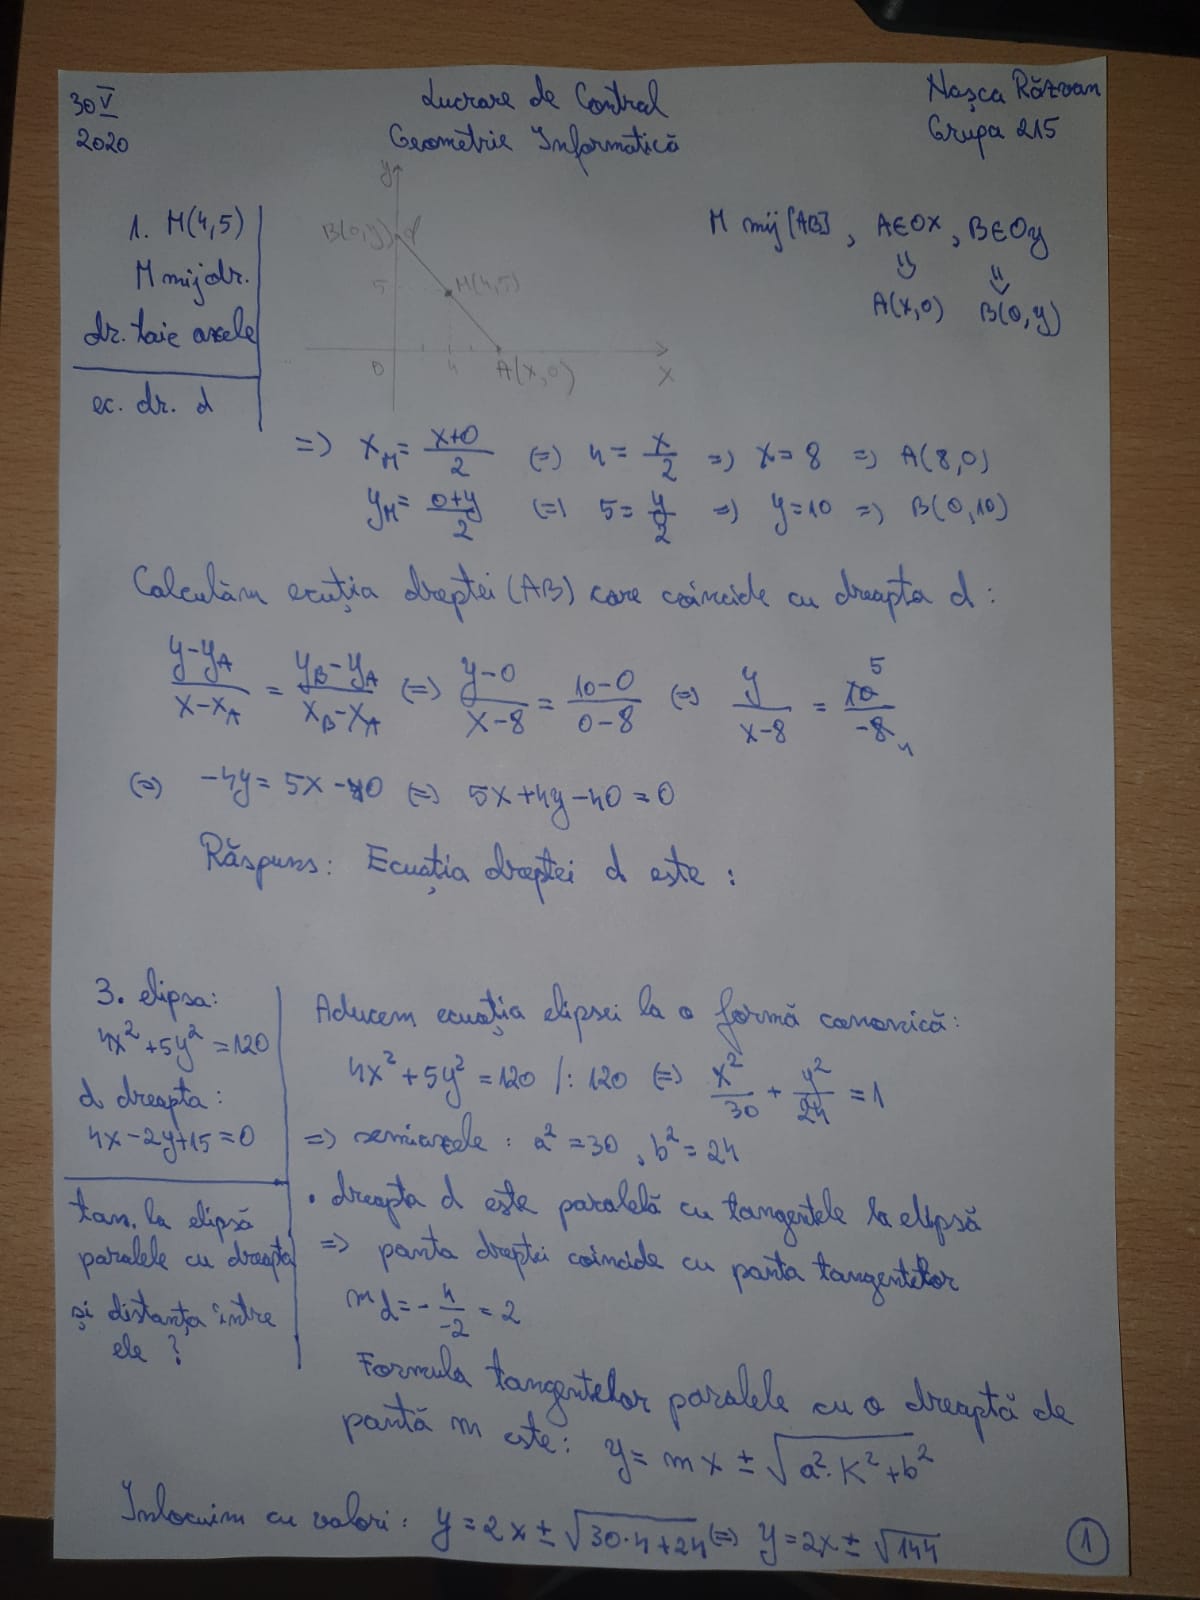 30 V 2020
Lucrare de Control
Geometrie Informatică
Nașca Răzvan
Grupa 215
1. M(4,5)
M mij dr.
dr. taie axele
ec. dr. d
y
B(0,y) d
5
M(4,5)
0 4 A(x,0) x
M mij [AB], A∈Ox, B∈Oy
⇓ ⇓
A(x,0) B(0,y)
=> x_M = (x+0)/2 (=) 4 = x/2 => x = 8 => A(8,0)
y_M = (0+y)/2 (=) 5 = y/2 => y = 10 => B(0,10)
Calculăm ecuția dreptei (AB) care coincide cu dreapta d:
(y-y_A)/(x-x_A) = (y_B-y_A)/(x_B-x_A) (=) (y-0)/(x-8) = (10-0)/(0-8) (=) y/(x-8) = 10^5/-8_4
(=) -4y = 5x - 40 (=) 5x+4y-40 = 0
Răspuns: Ecuația dreptei d este :
3. elipsa:
4x² + 5y² = 120
d dreapta:
4x - 2y + 15 = 0
tan. la elipsă
paralele cu dreapta
și distanța între
ele ?
Aducem ecuația elipsei la o formă canonică:
4x² + 5y² = 120 /: 120 (=) x²/30 + y²/24 = 1
=> semiaxele : a² = 30, b² = 24
• dreapta d este paralelă cu tangentele la elipsă
=> panta dreptei coincide cu panta tangentelor
m_d = - 4/-2 = 2
Formula tangentelor paralele cu o dreaptă de
pantă m este: y = mx ± √(a²·K²+b²)
Inlocuim cu valori: y = 2x ± √(30·4+24) (=) y = 2x ± √144
1